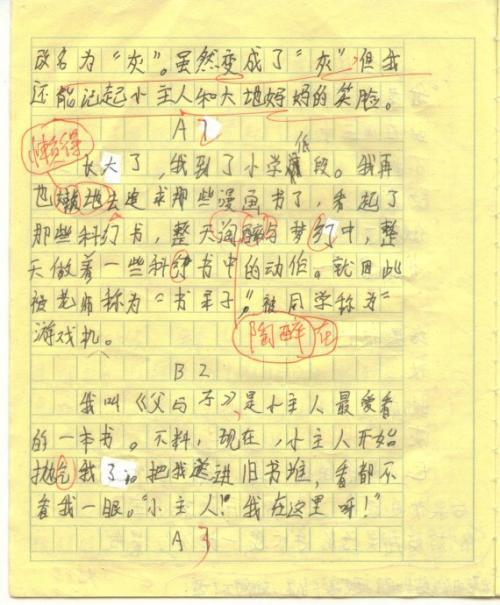 改名为“灰”。虽然变成了“灰”,但我
还能记起小主人和大地妈妈的笑脸。
A 2
长大了,我到了小学低段。我再
也懒地去追求那些漫画书了,看起了
那些科幻书,整天淘醉与梦幻中,整
天做着一些科幻书中的动作。就因此
被老师称为“书呆子”,被同学称为“
游戏机。
B 2
我叫《父与子》,是小主人最爱看
的一本书。不料,现在,小主人开始
抛乞我了。把我送进旧书堆,看都不
看我一眼。“小主人!我在这里呀!”
A 3
懒得
陶醉在